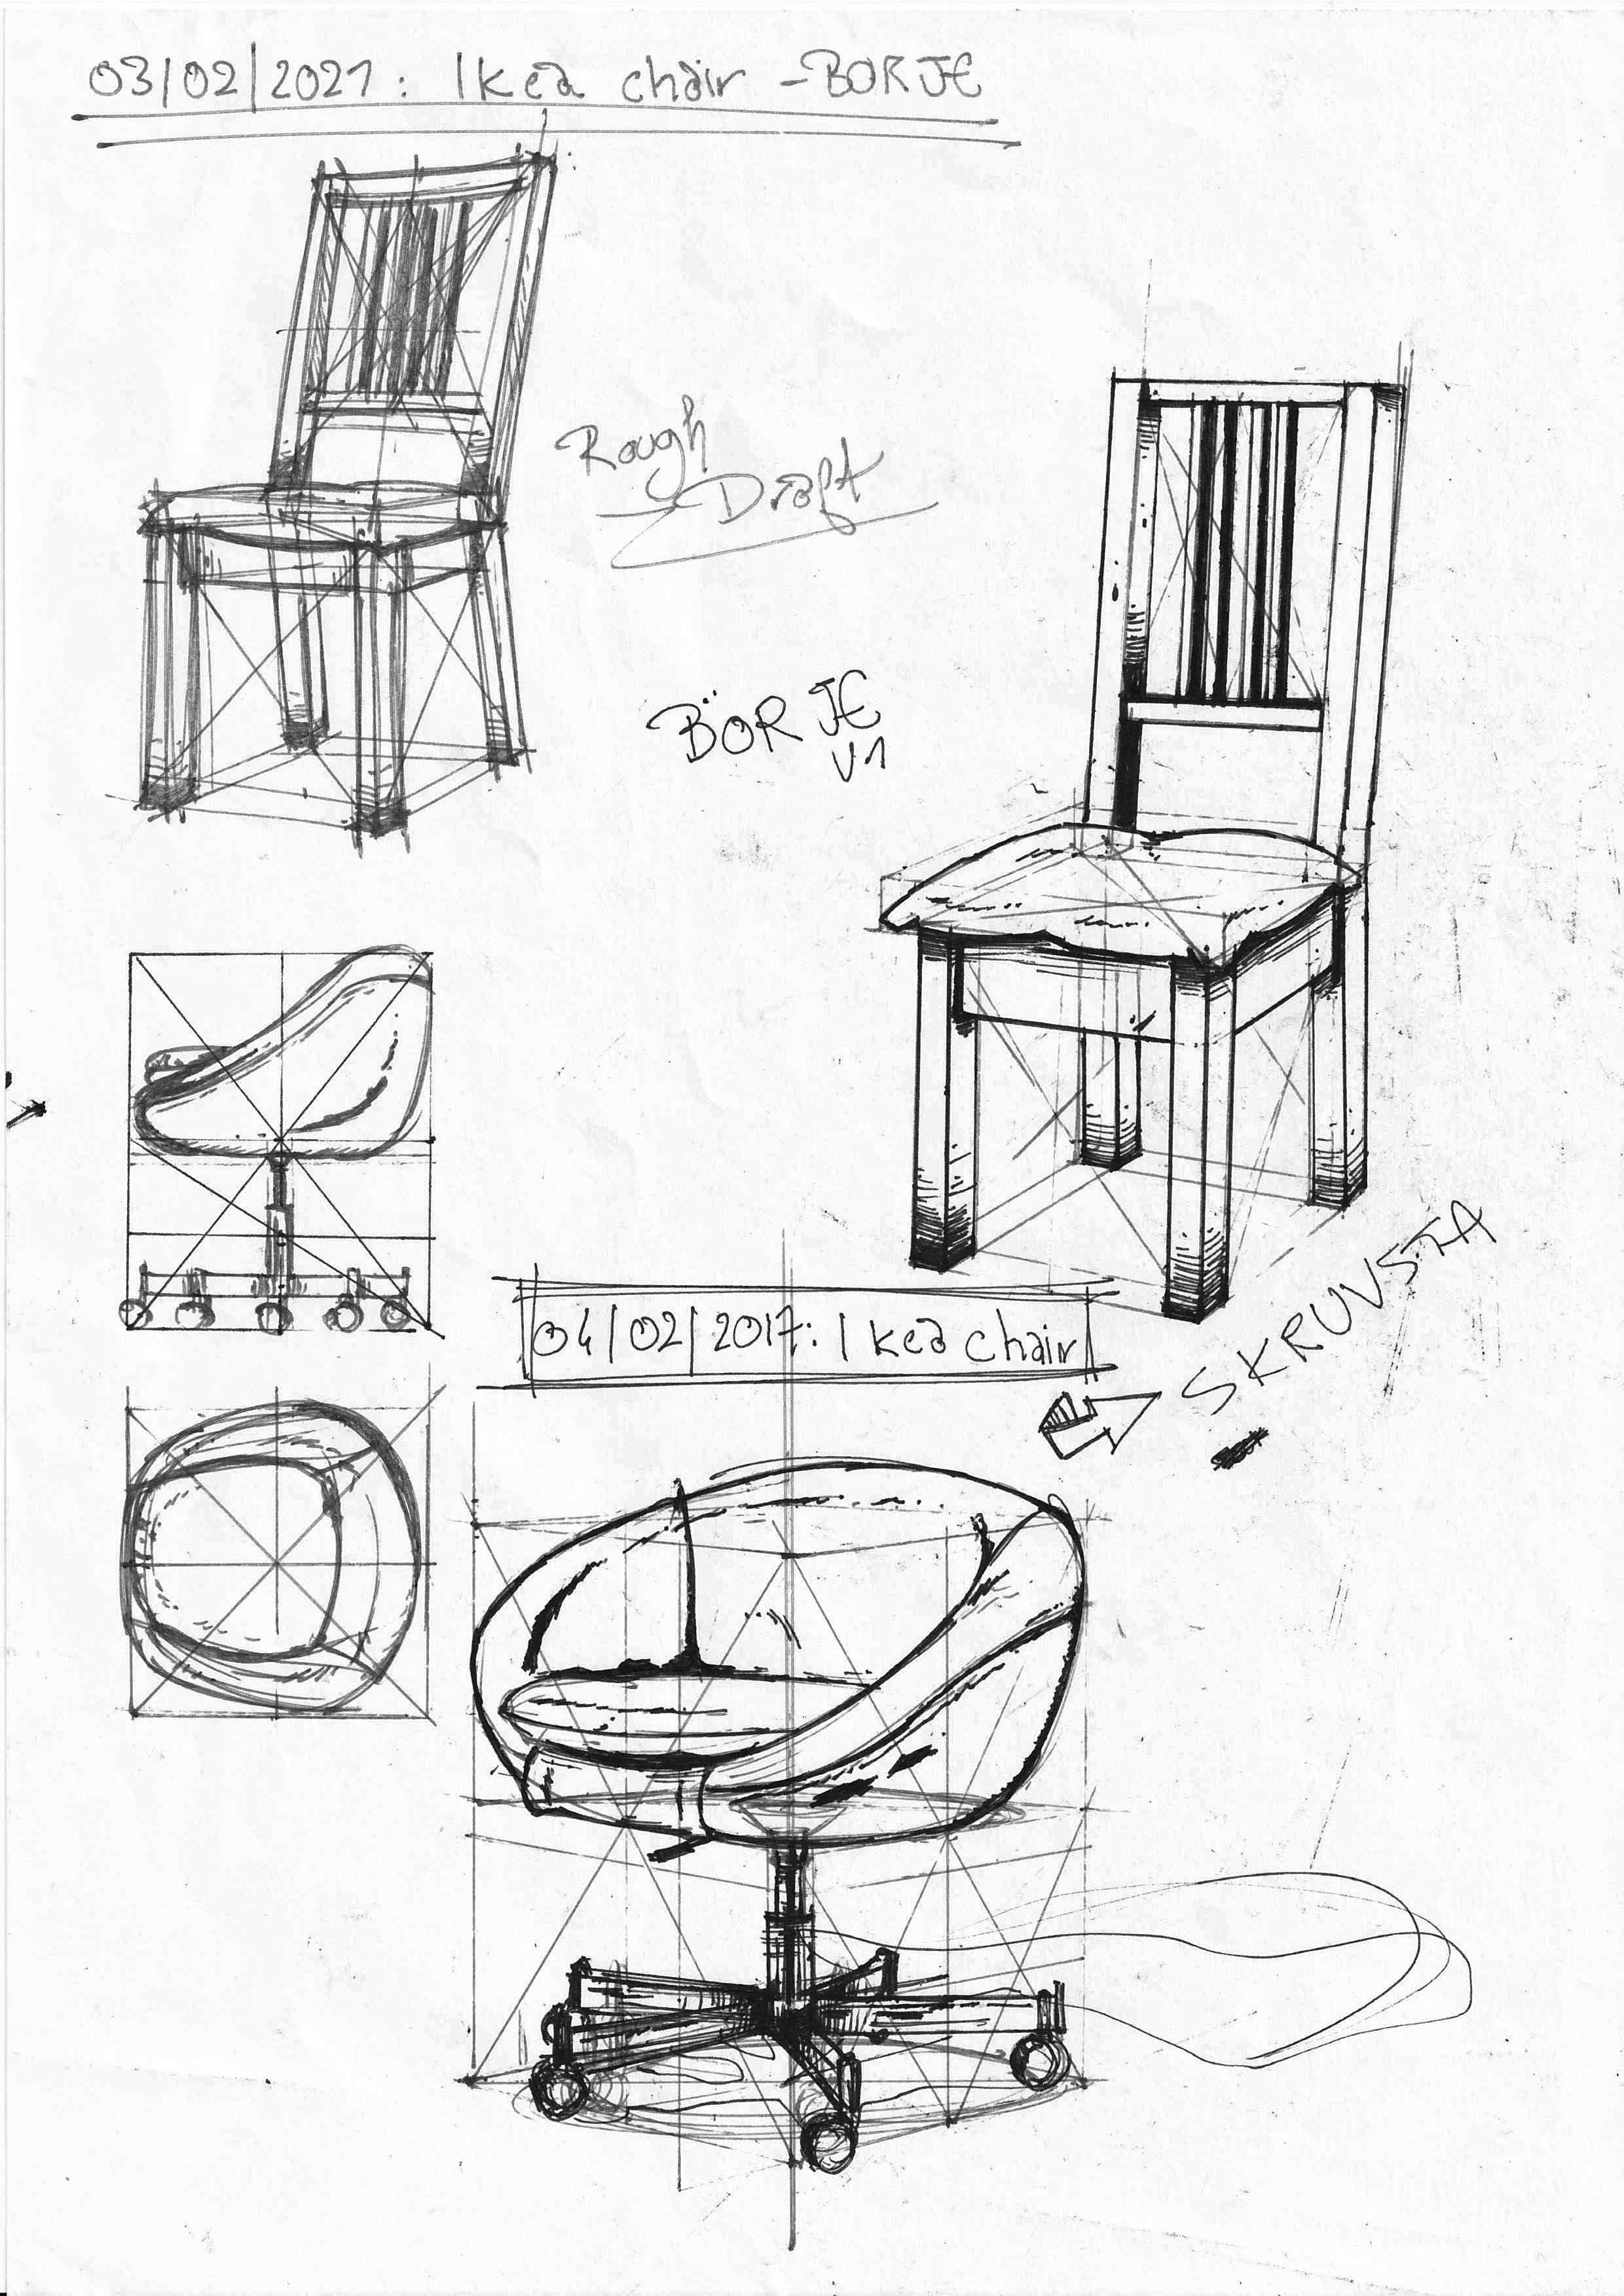 03/02/2021: Ikea chair - BORJE
Rough
Draft
BÖRJE
V1
04/02/2017: Ikea chair
SKRUVSTA